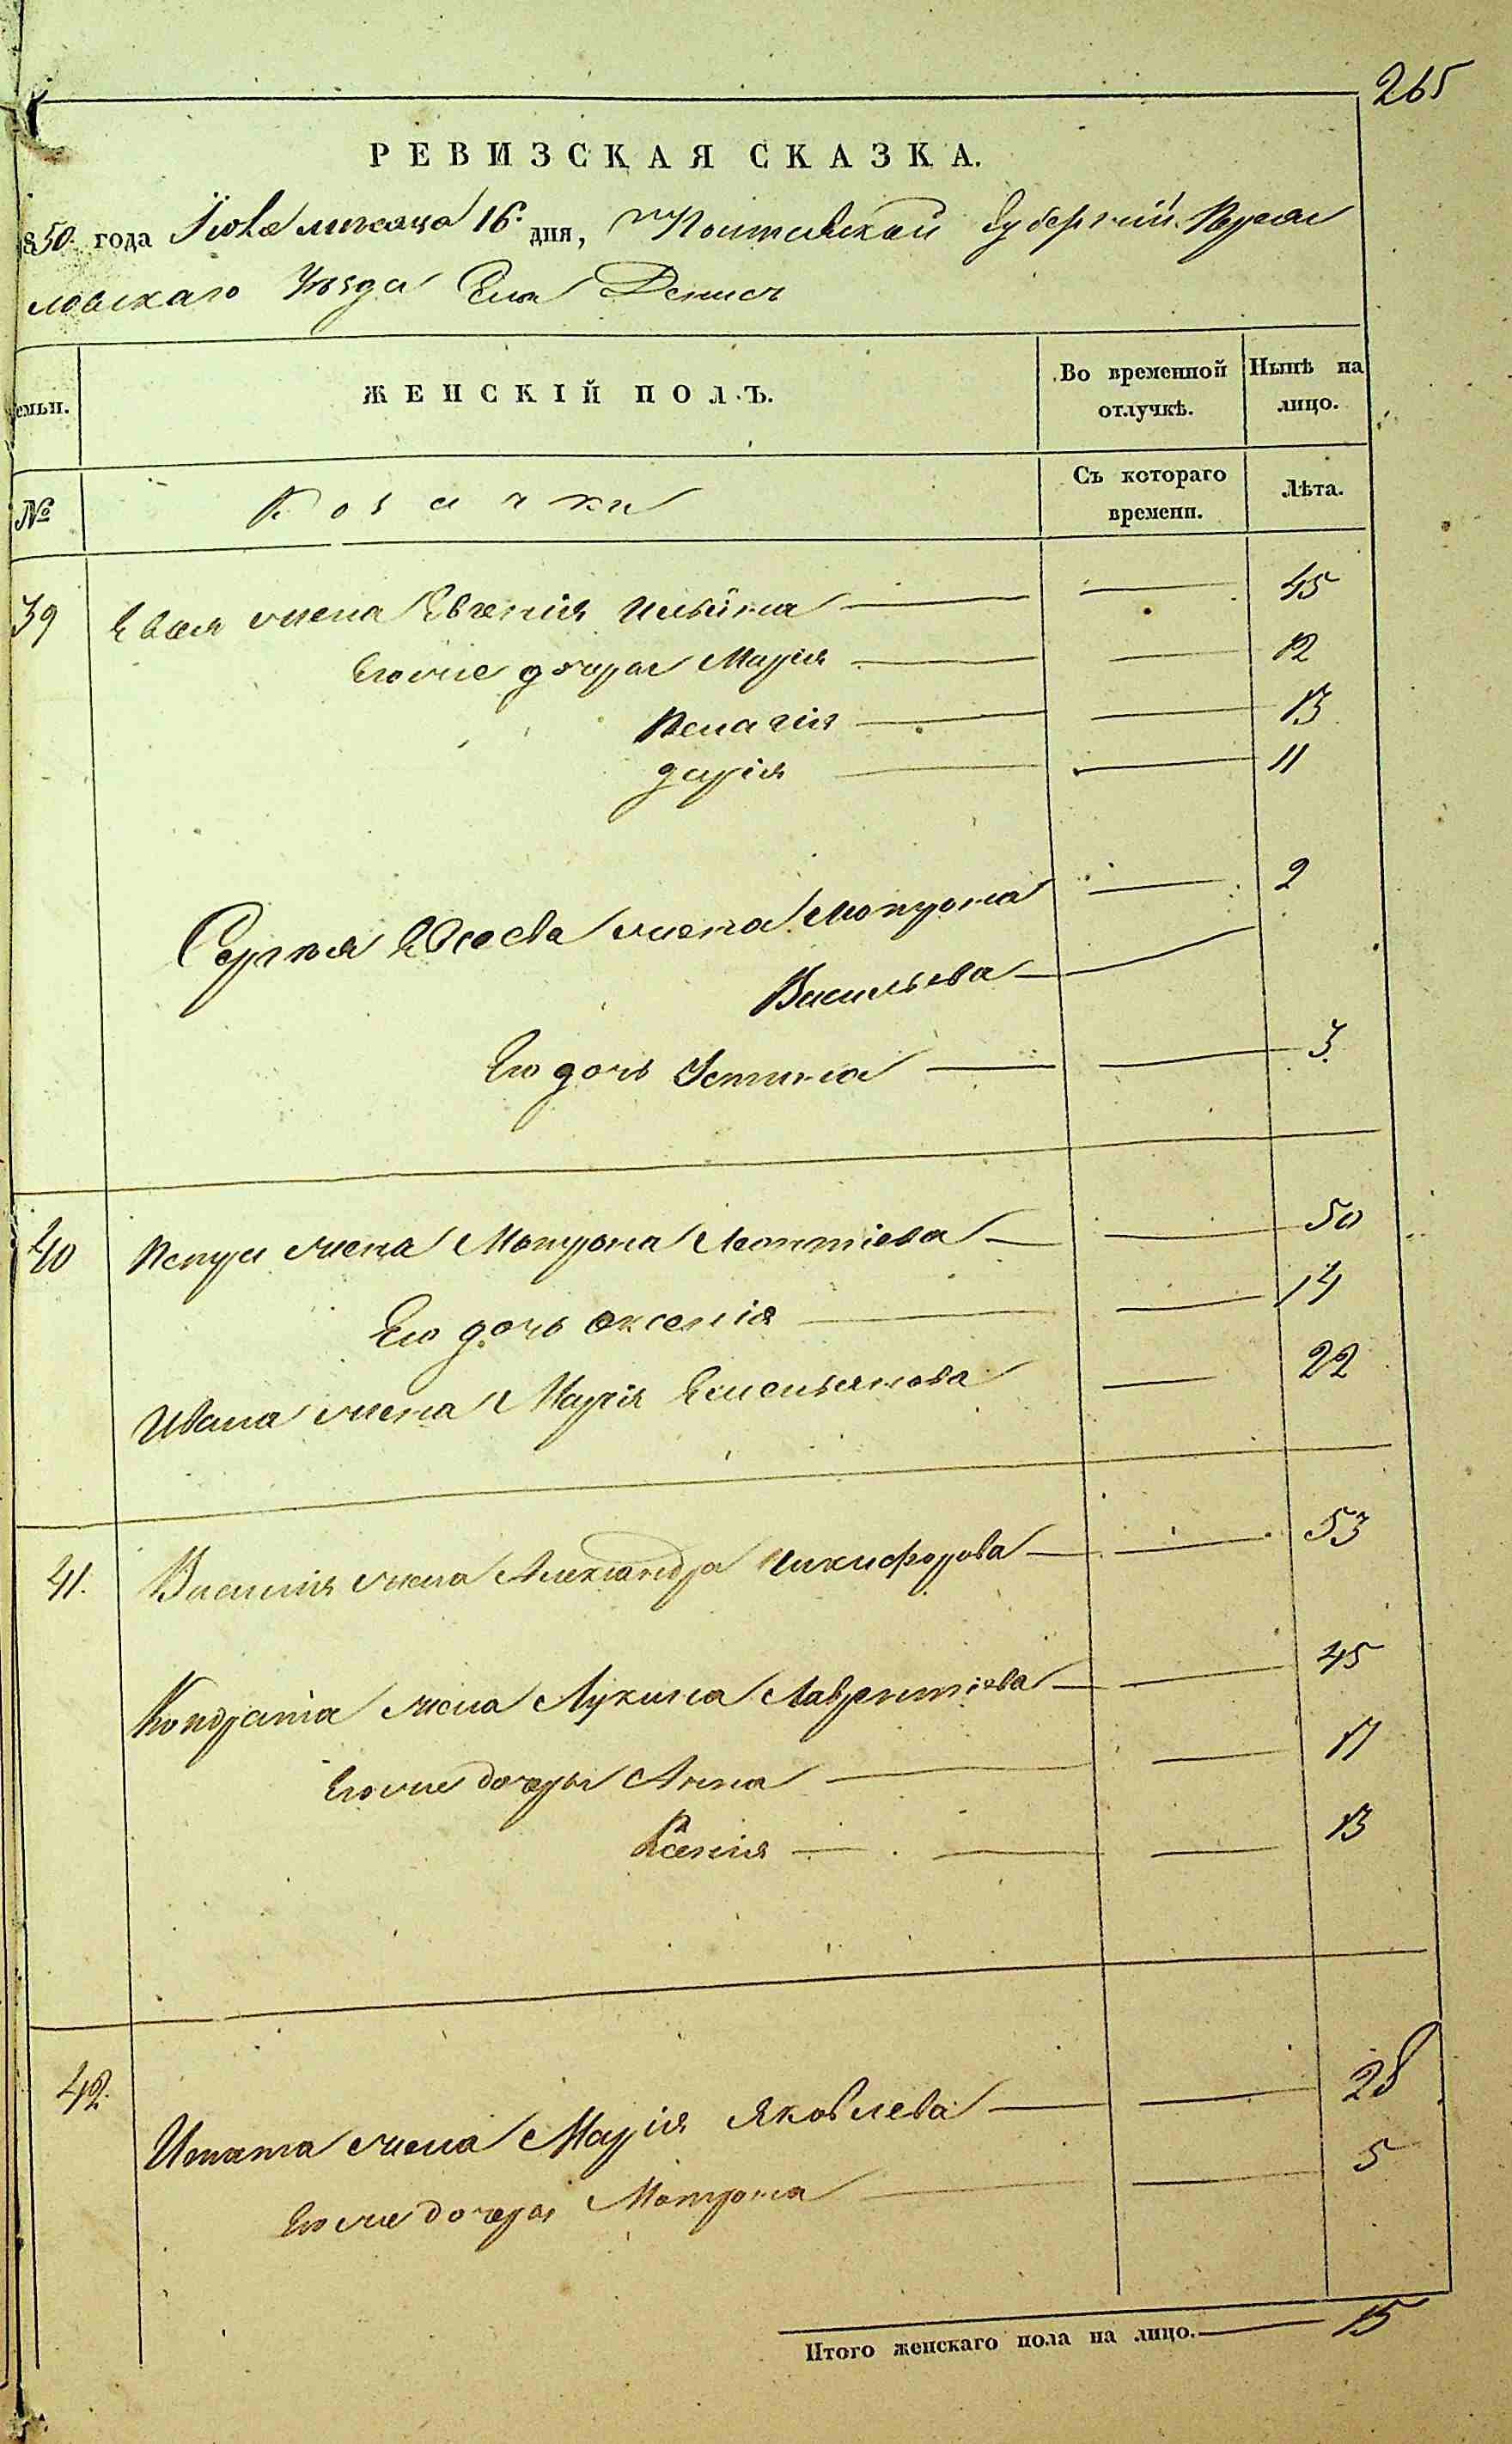 265
РЕВИЗСКАЯ СКАЗКА.
850 года Іюля месяца 16 дня, Полтавской Губернии Переяс
ловскаго Уезда Села Денис
емьи.
ЖЕНСКІЙ ПОЛЪ.
Во временной
отлучкѣ.
Нынѣ на
лицо.
№
Козачки
Съ котораго
времени.
Лѣта.
39 жена Евгенія Ильина — — 45
Его же дочери Марія — — 12
Пелагія — — 13
дарія — — 11
Сергея жена Мотрона — 2
Васильева —
Его дочь Устина — — 3
40 Петра жена Мотрона Леонтіева — — 50
Его дочь Оксенія — — 14
Ивана жена Марія Емельянова — 22
41. Василія жена Александра Никифорова — — 53
Кондратія жена Лукина Лаврентіева — — 45
Его же дочеры Анна — — 17
Ксенія — — 13
42. Игната жена Марія Яковлева — — 28
Его же дочеры Мотрона — — 5
Итого женскаго пола на лицо. — 15